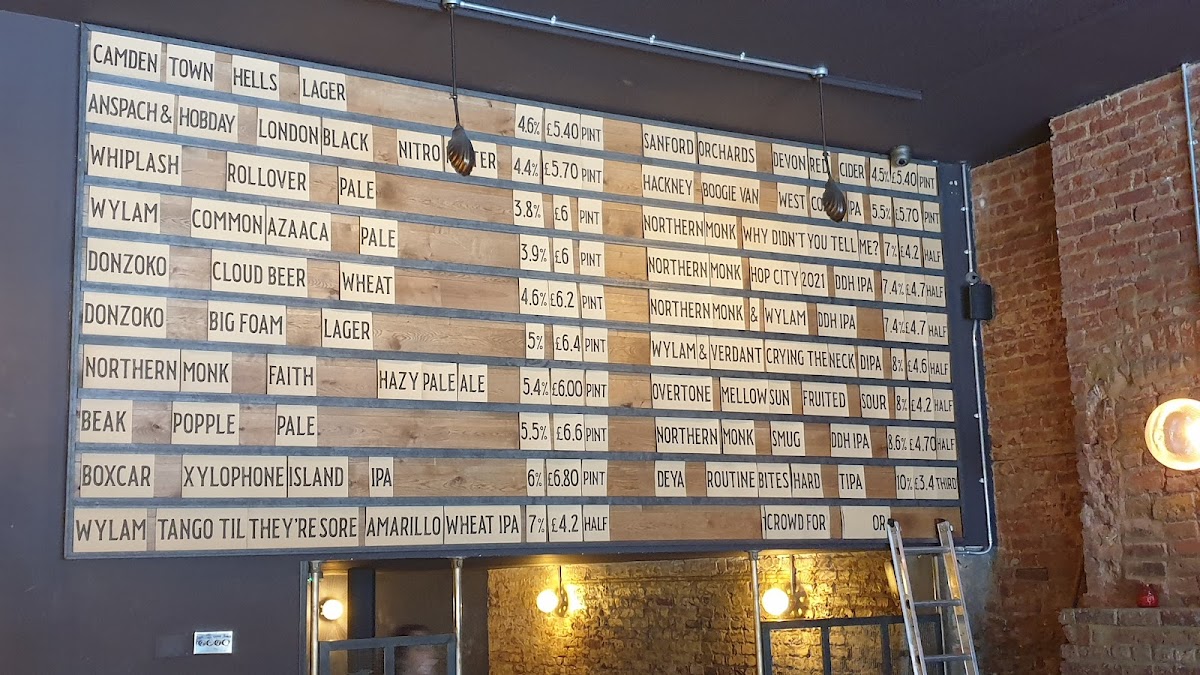 CAMDEN TOWN HELLS LAGER 4.6% £5.40 PINT
ANSPACH & HOBDAY LONDON BLACK NITRO 4.4% £5.70 PINT
WHIPLASH ROLLOVER PALE 3.8% £6 PINT
WYLAM COMMON AZAACA PALE 3.9% £6 PINT
DONZOKO CLOUD BEER WHEAT 4.6% £6.2 PINT
DONZOKO BIG FOAM LAGER 5% £6.4 PINT
NORTHERN MONK FAITH HAZY PALE ALE 5.4% £6.00 PINT
BEAK POPPLE PALE 5.5% £6.6 PINT
BOXCAR XYLOPHONE ISLAND IPA 6% £6.80 PINT
WYLAM TANGO TIL THEY'RE SORE AMARILLO WHEAT IPA 7% £4.2 HALF
SANFORD ORCHARDS DEVON RED CIDER 4.5% £5.40 PINT
HACKNEY BOOGIE VAN WEST IPA 5.5% £5.70 PINT
NORTHERN MONK WHY DIDN'T YOU TELL ME? 7% £4.2 HALF
NORTHERN MONK HOP CITY 2021 DDH IPA 7.4% £4.7 HALF
NORTHERN MONK & WYLAM DDH IPA 7.4% £4.7 HALF
WYLAM & VERDANT CRYING THE NECK DIPA 8% £4.6 HALF
OVERTONE MELLOW SUN FRUITED SOUR 8% £4.2 HALF
NORTHERN MONK SMUG DDH IPA 8.6% £4.70 HALF
DEYA ROUTINE BITES HARD TIPA 10% £3.4 THIRD
1CROWD FOR OR